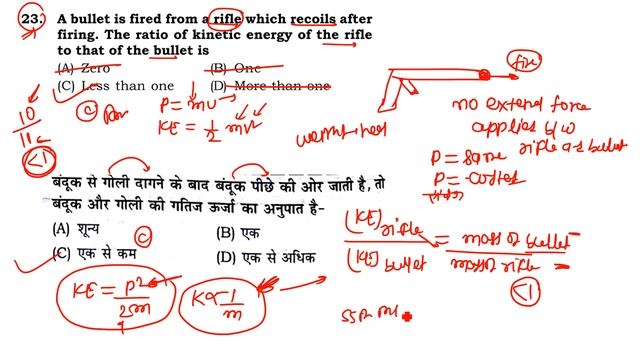 23. A bullet is fired from a rifle which recoils after
firing. The ratio of kinetic energy of the rifle
to that of the bullet is
(A) Zero (B) One
(C) Less than one (D) More than one
P = mv
KE = 1/2 mv²
10/11
<1
fire
no extend force
applies b/w
rifle as bullet
P = same
P = 
बंदूक से गोली दागने के बाद बंदूक पीछे की ओर जाती है, तो
बंदूक और गोली की गतिज ऊर्जा का अनुपात है-
(A) शून्य (B) एक
(C) एक से कम (D) एक से अधिक
C
(KE) rifle / (KE) bullet = mass of bullet / mass of rifle
<1
KE = P²/2m
K∝1/m